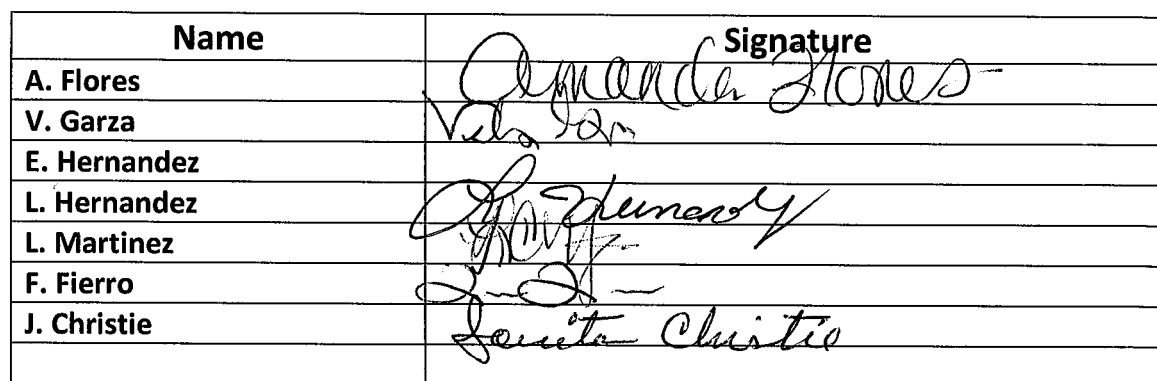 Name Signature
A. Flores Amanda Flores
V. Garza
E. Hernandez
L. Hernandez
L. Martinez
F. Fierro
J. Christie Juanita Christie